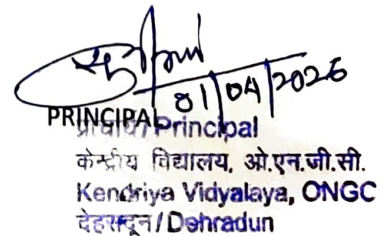 01/04/2026
PRINCIPAL
प्राचार्य/Principal
केन्द्रीय विद्यालय, ओ.एन.जी.सी.
Kendriya Vidyalaya, ONGC
देहरादून/Dehradun